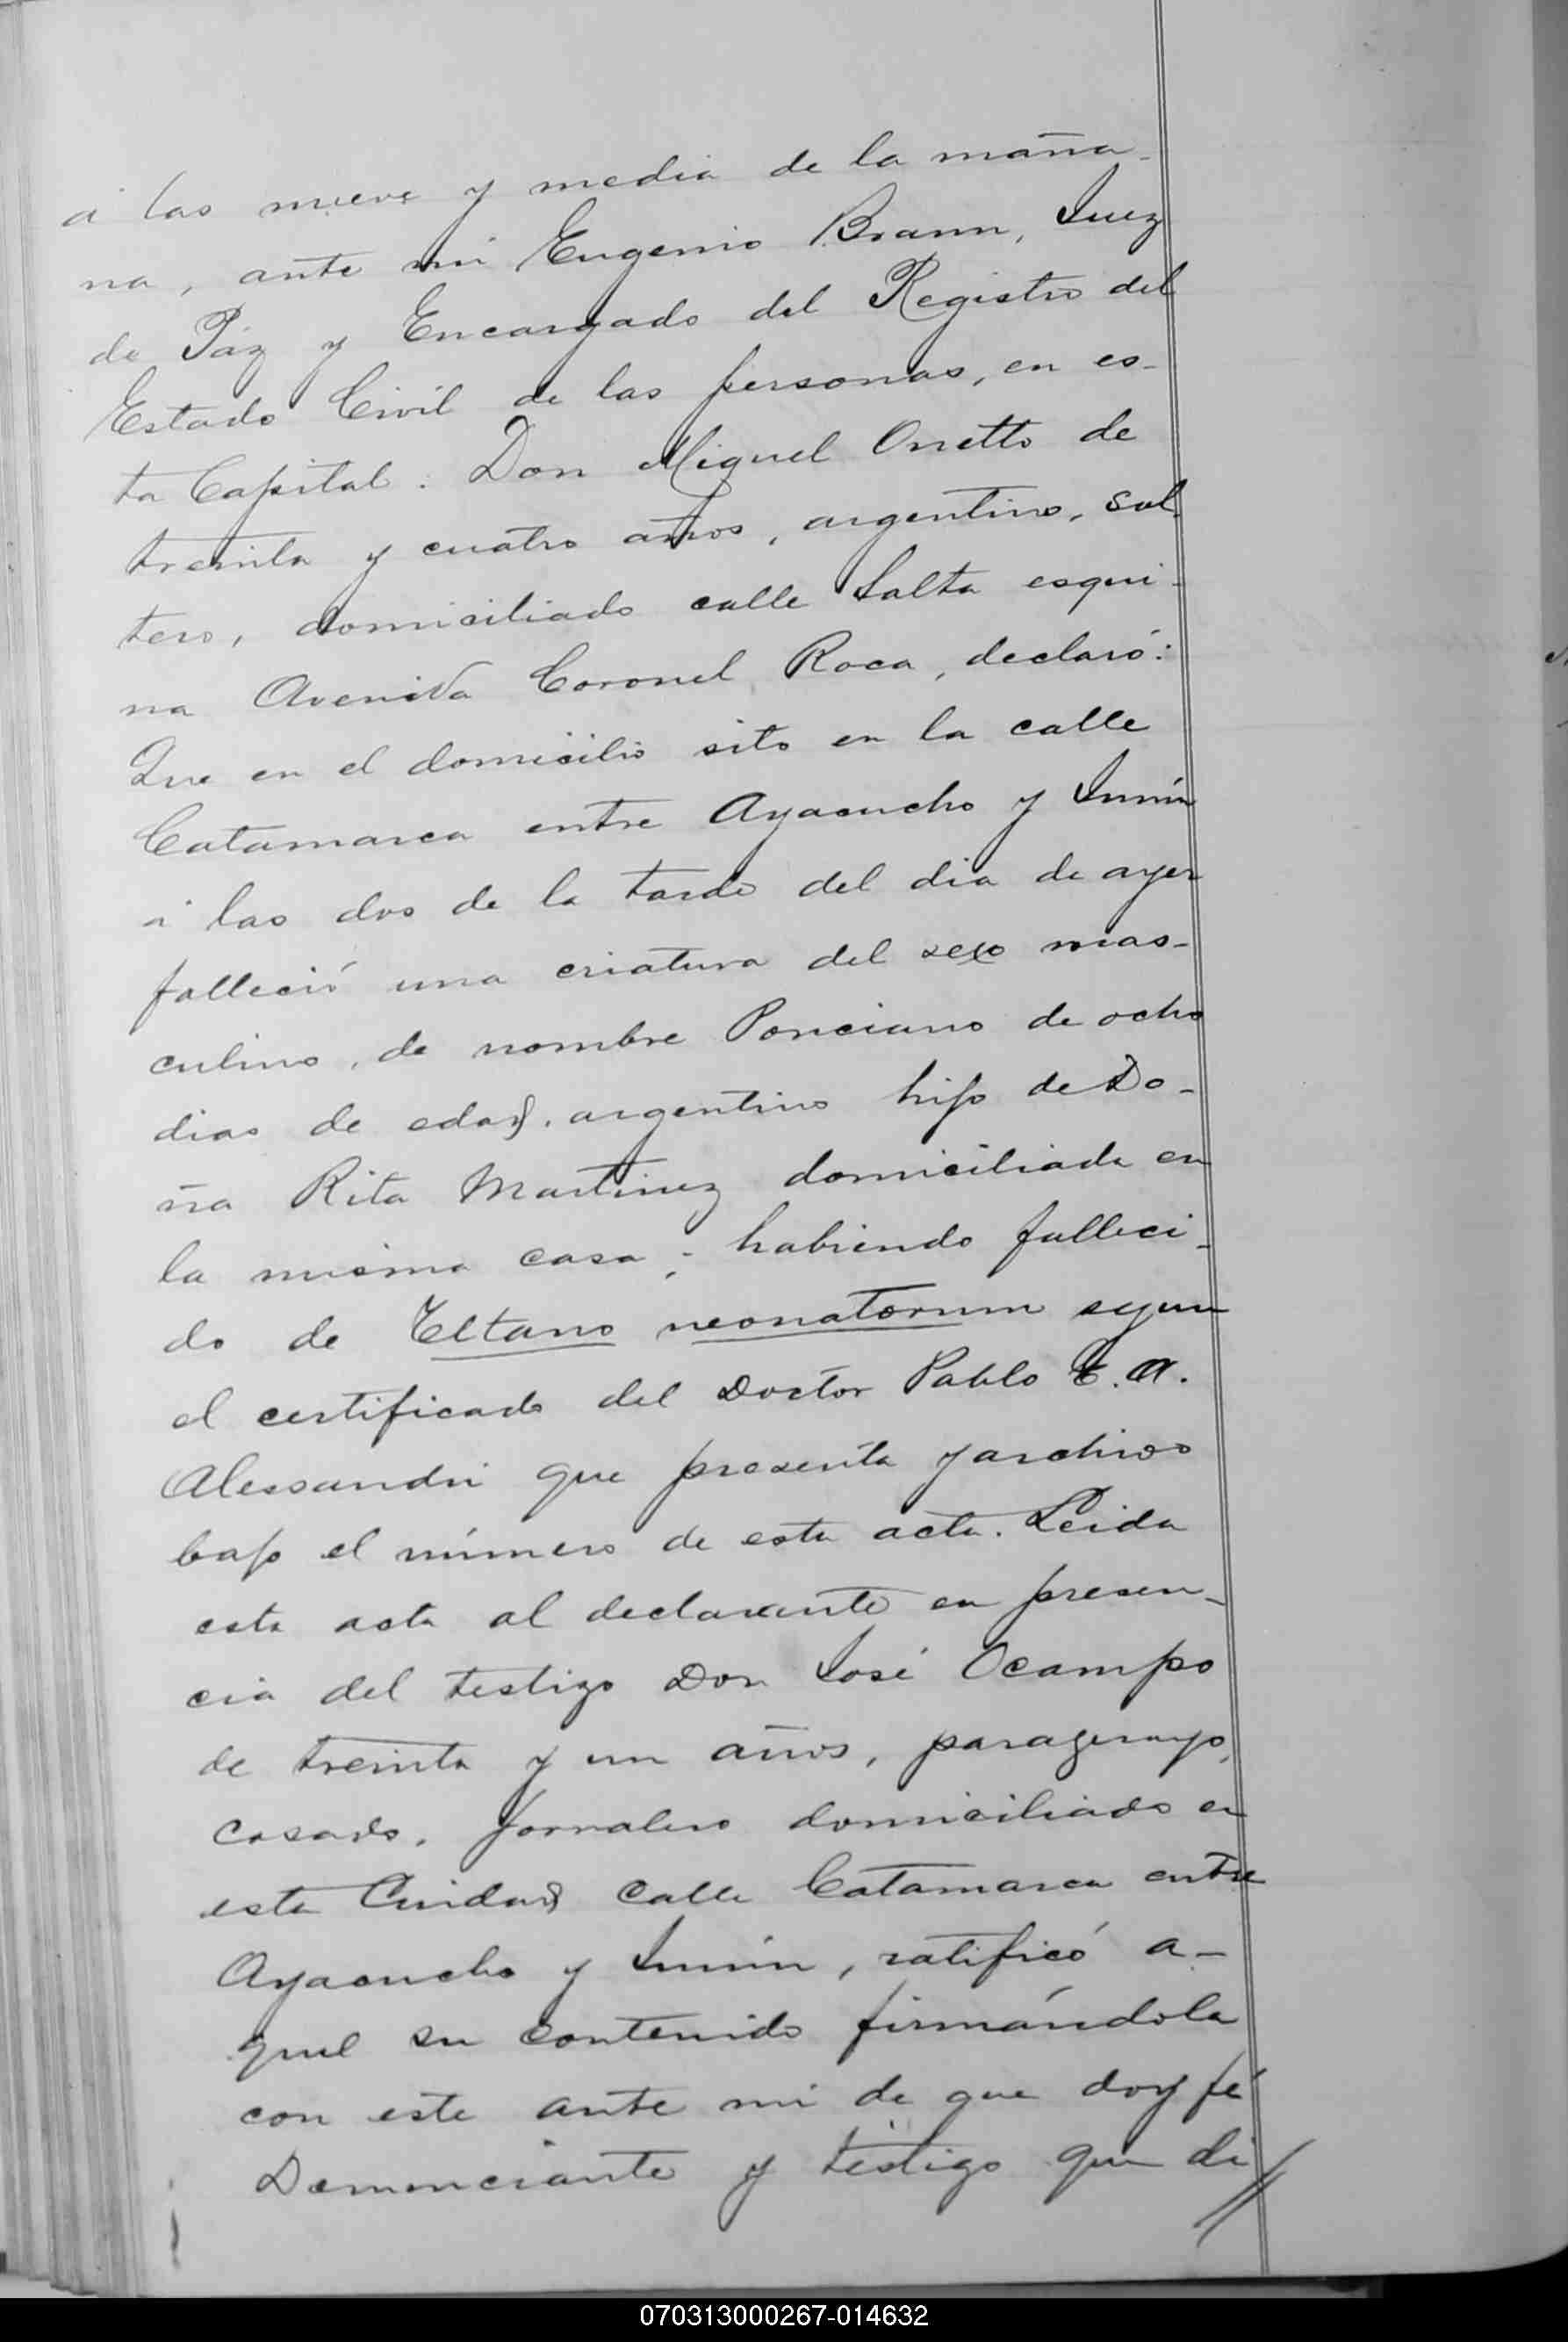 á las nueve y media de la maña-
na, ante mí Eugenio Braun, Juez
de Páz y Encargado del Registro del
Estado Civil de las personas, en es-
ta Capital. Don Miguel Onetto de
treinta y cuatro años, argentino, sol
tero, domiciliado calle Salta esqui-
na Avenida Coronel Roca, declaró:
Que en el domicilio sito en la calle
Catamarca entre Ayacucho y Junín
á las dos de la tarde del dia de ayer
falleció una criatura del sexo mas-
culino, de nombre Ponciano de ocho
dias de edad, argentino hijo de Do-
ña Rita Martinez domiciliada en
la misma casa; habiendo falleci-
do de Tétano neonatorum segun
el certificado del Doctor Pablo E. A.
Alessandri que presenta y archivo
bajo el número de esta acta. Leida
esta acta al declarante en presen-
cia del testigo Don José Ocampo
de treinta y un años, paraguayo,
casado, jornalero domiciliado en
esta Ciudad calle Catamarca entre
Ayacucho y Junín, ratificó a-
quel su contenido firmándola
con este ante mi de que doy fé
Denunciante y testigo que di
//
070313000267-014632